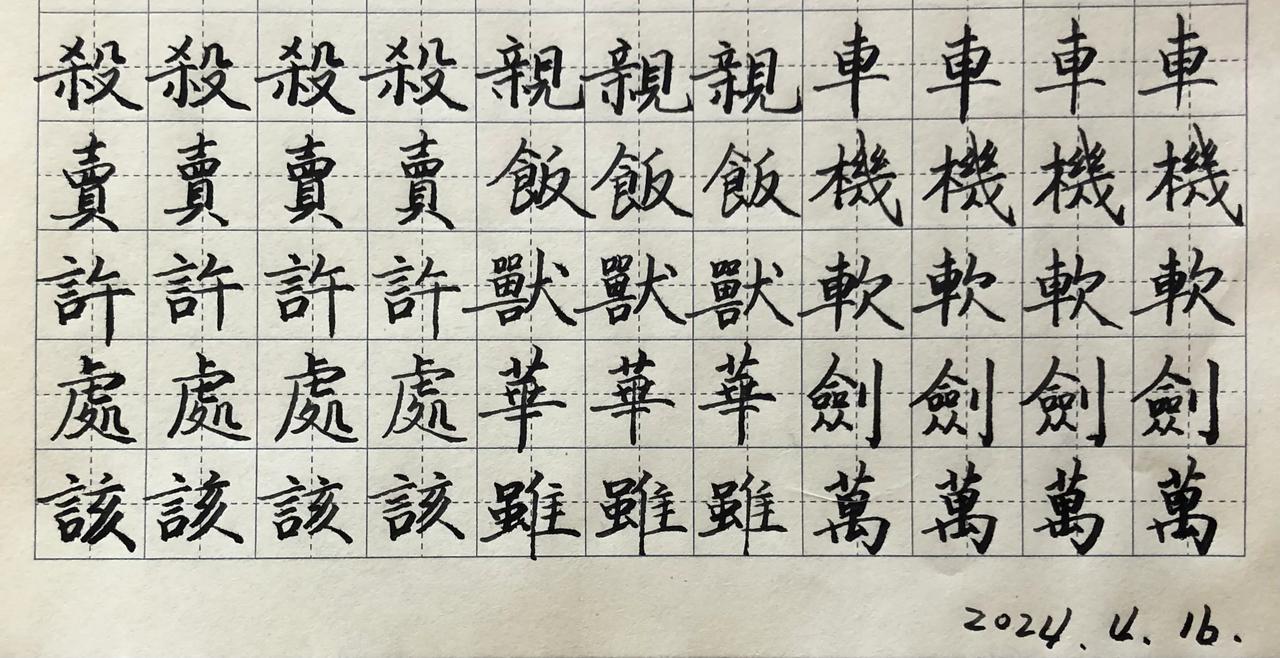 殺殺殺殺親親親車車車車
賣賣賣賣飯飯飯機機機機
許許許許獸獸獸軟軟軟軟
處處處處華華華劍劍劍劍
該該該該雖雖雖萬萬萬萬
2024.4.16.